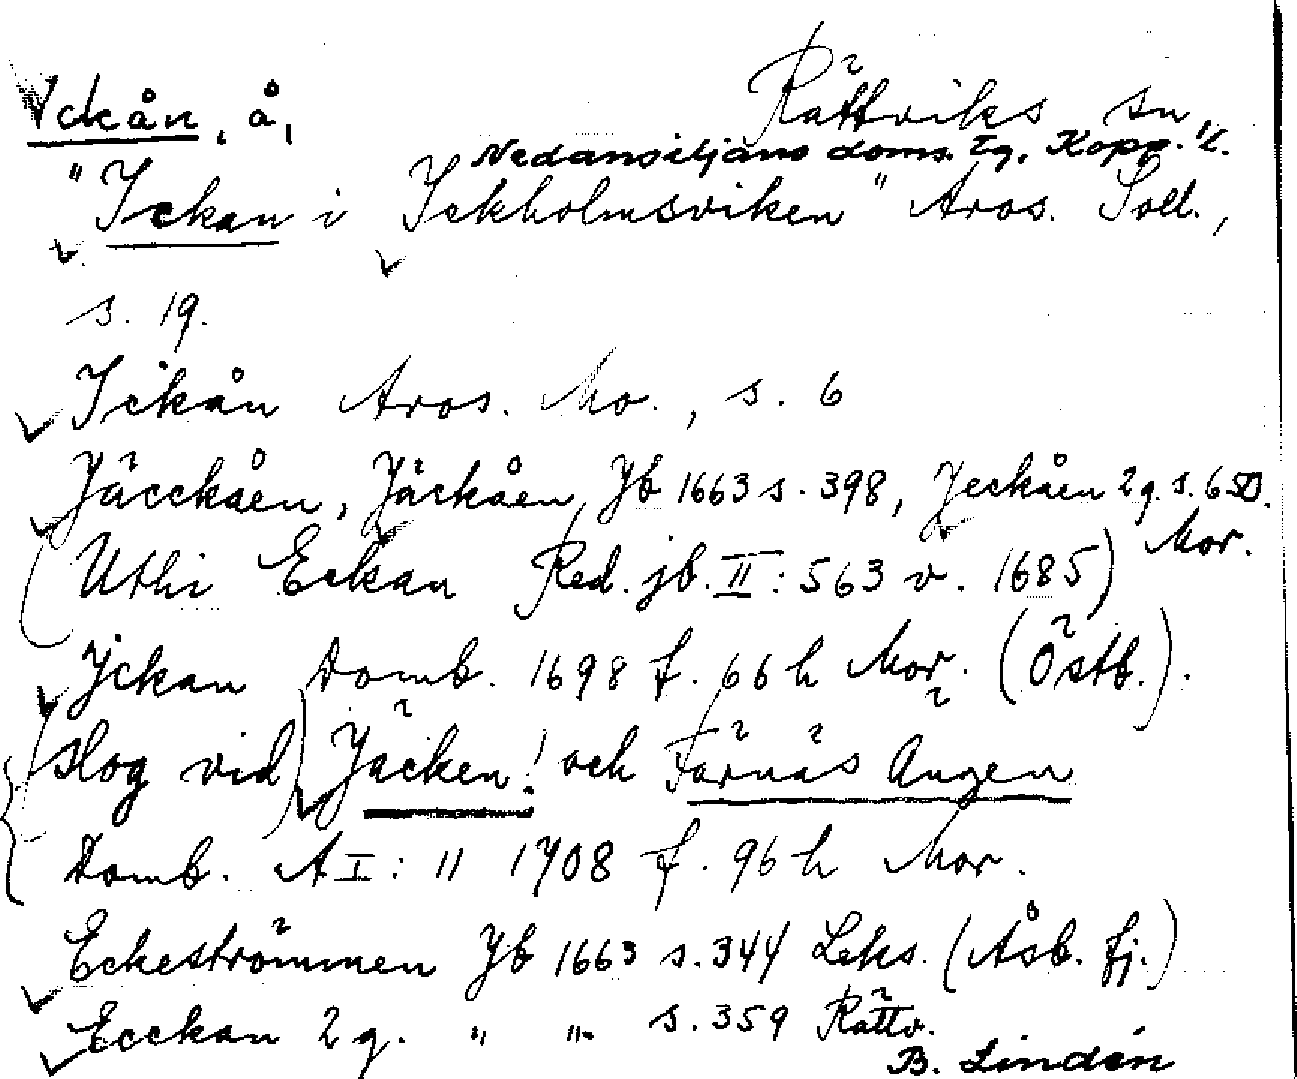 Ickån, å, Rättviks sn,
Nedansiljans doms. tg. Kopp. l.
"Ickan i Ickholmsviken" Aros. Soll.,
s. 19.
Ickån Aros. Mo., s. 6
Jäcckåen, Jäckåen Jb 1663 s. 398, Jeckåen 2 g. s. 650.
Mor.
(Uthi Eckan Red. jb. II: 563 v. 1685)
Ickan Domb. 1698 f. 66 h Mor. (Östb.).
slog vid) Jäcken! och Färnäs Ängen
Domb. A I: 11 1708 f. 96 h Mor.
Eckeströmmen Jb 1663 s. 344 Leks. (Åsb. fj.)
Ecckan 2 g. " " s. 359 Rättv.
B. Lindén